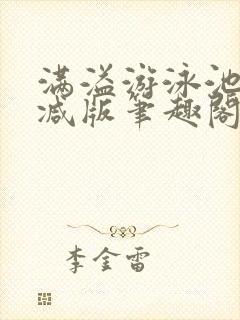 满溢游泳池
减版笔趣阁
李金雷